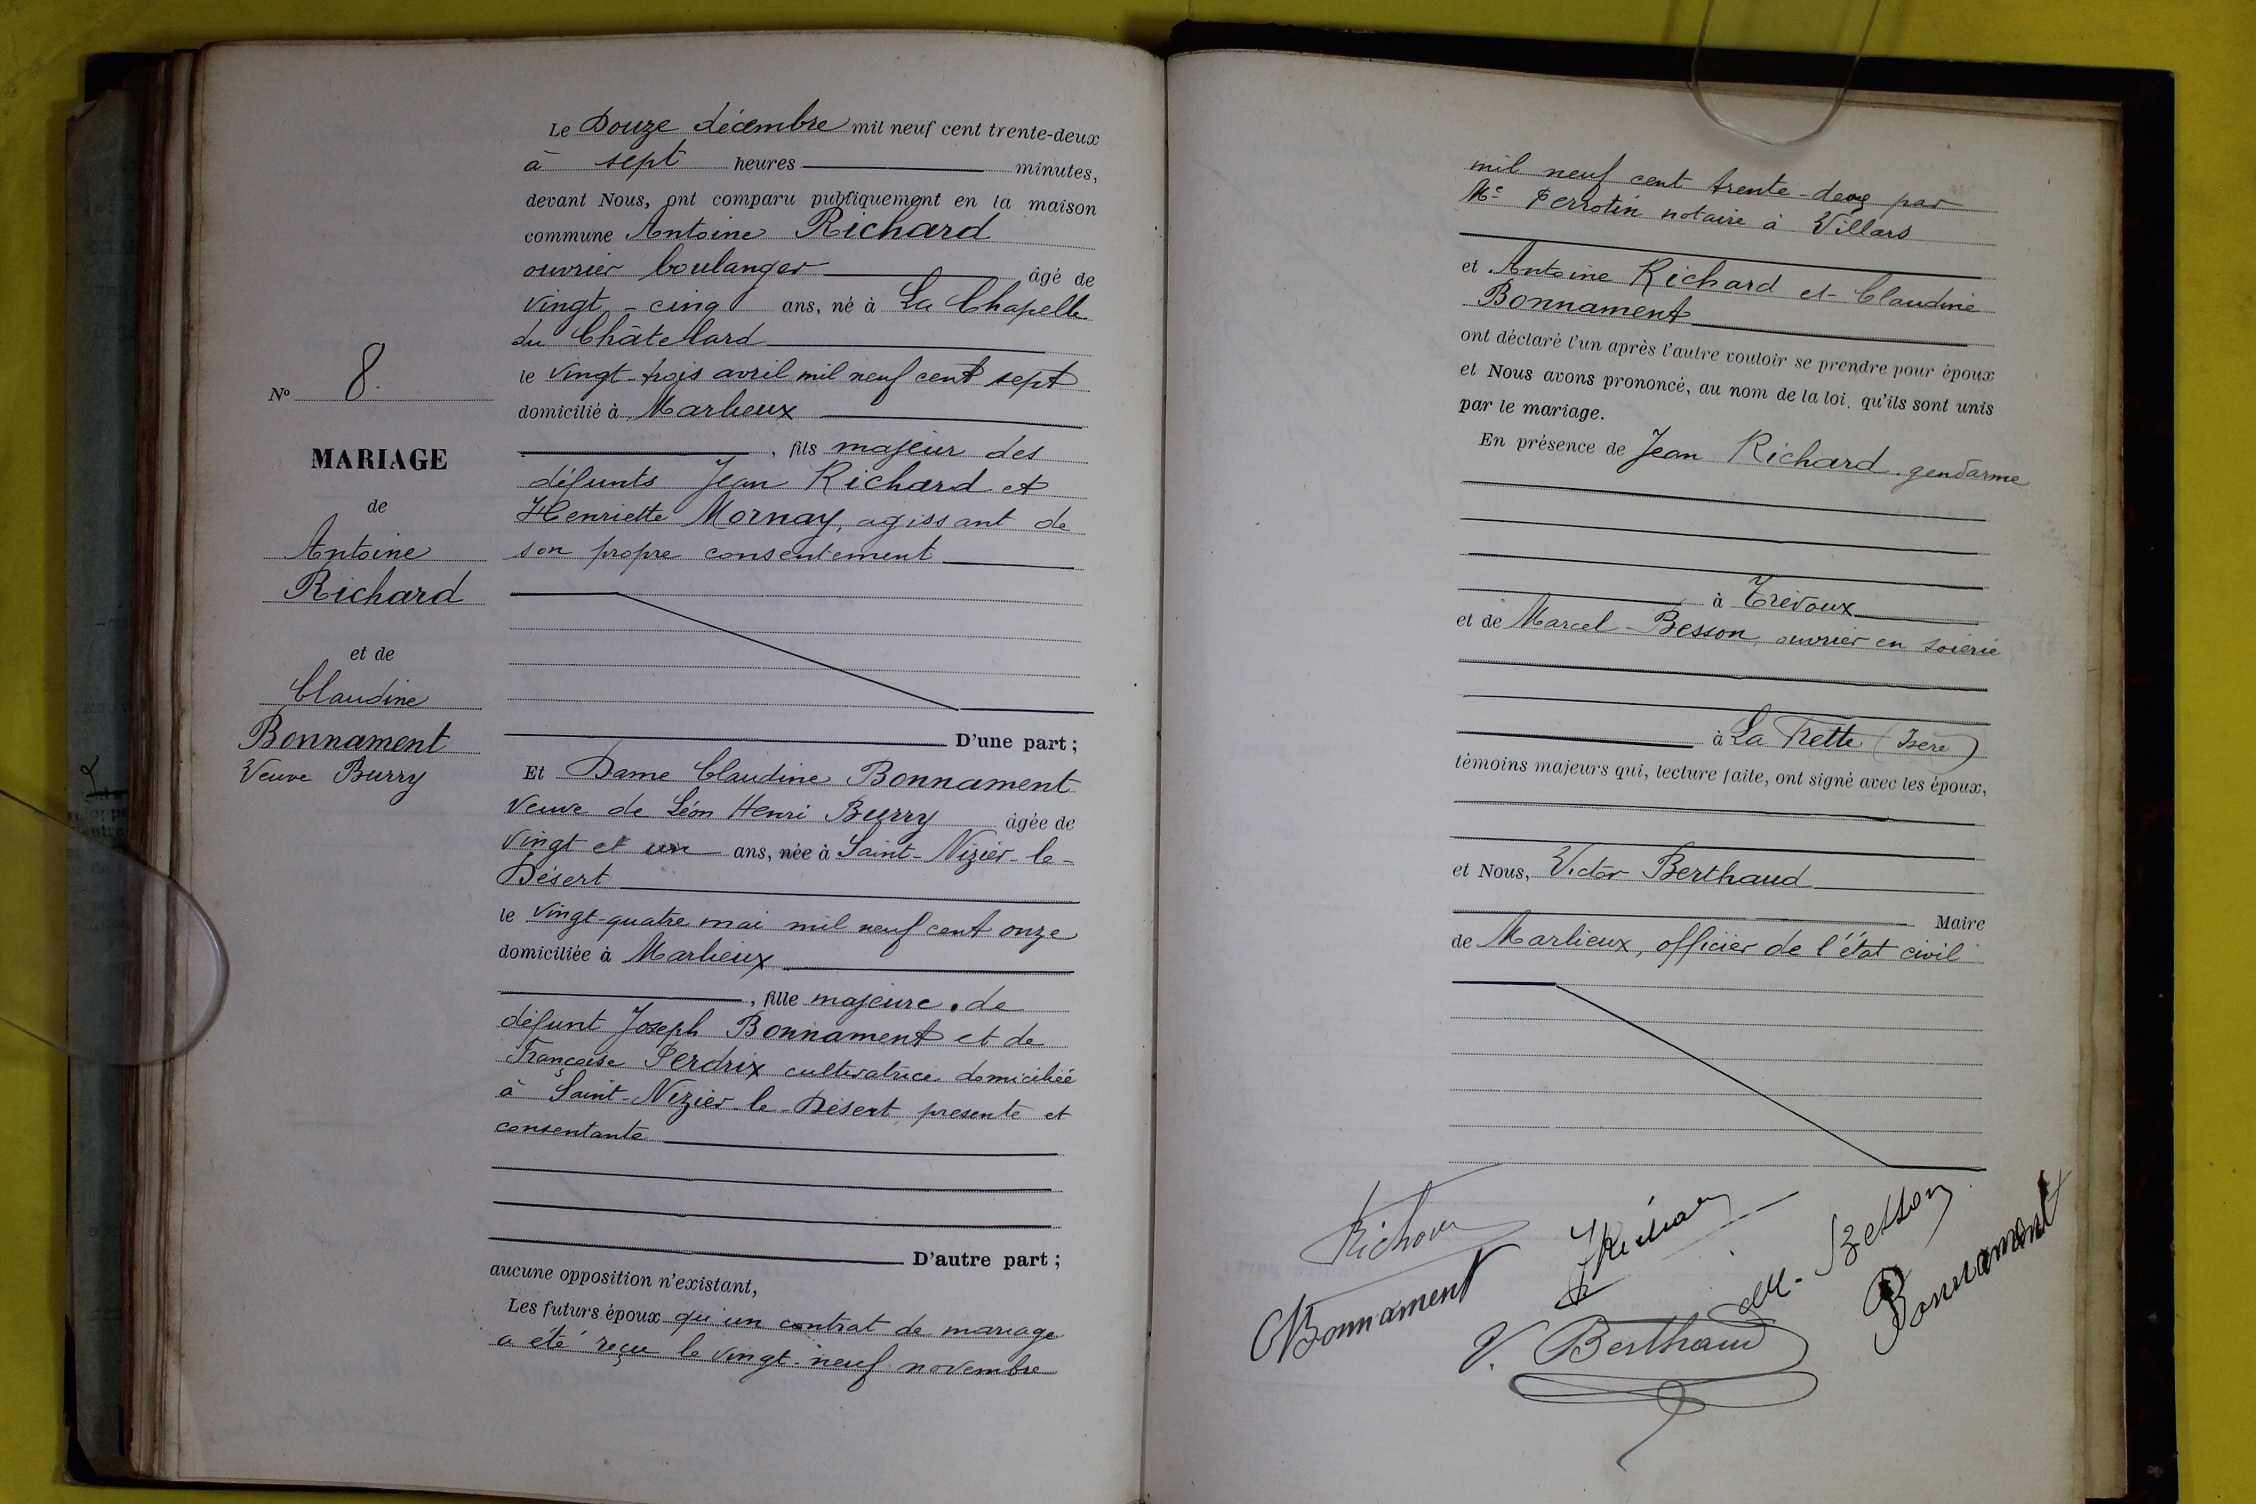 Le Douze décembre mil neuf cent trente-deux
à sept heures minutes,
devant Nous, ont comparu publiquement en la maison
commune Antoine Richard
ouvrier boulanger âgé de
vingt-cinq ans, né à La Chapelle
du Châtelard
le vingt-trois avril mil neuf cent sept
domicilié à Marlieux
, fils majeur des
défunts Jean Richard et
Henriette Mornay, agissant de
son propre consentement
D'une part ;
Et Dame Claudine Bonnament
Veuve de Léon Henri Burry âgée de
vingt et un ans, née à Saint-Nizier-le-
Désert
le vingt-quatre mai mil neuf cent onze
domiciliée à Marlieux
, fille majeure de
défunt Joseph Bonnament et de
Françoise Perdrix cultivatrice domiciliée
à Saint-Nizier-le-Désert, présente et
consentante
D'autre part ;
aucune opposition n'existant,
Les futurs époux qu'un contrat de mariage
a été reçu le vingt-neuf novembre
No 8.
MARIAGE
de
Antoine
Richard
et de
Claudine
Bonnament
Veuve Burry
mil neuf cent trente-deux par
Me Perrotin notaire à Villars
et Antoine Richard et Claudine
Bonnament
ont déclaré l'un après l'autre vouloir se prendre pour époux
et Nous avons prononcé, au nom de la loi, qu'ils sont unis
par le mariage.
En présence de Jean Richard gendarme
à Trévoux
et de Marcel Besson, ouvrier en soierie
à La Frette (Isère)
témoins majeurs qui, lecture faite, ont signé avec les époux,
et Nous, Victor Berthaud
Maire
de Marlieux, officier de l'état civil
Richard
Bonnament
V. Berthaud
M. Besson
Bonnament